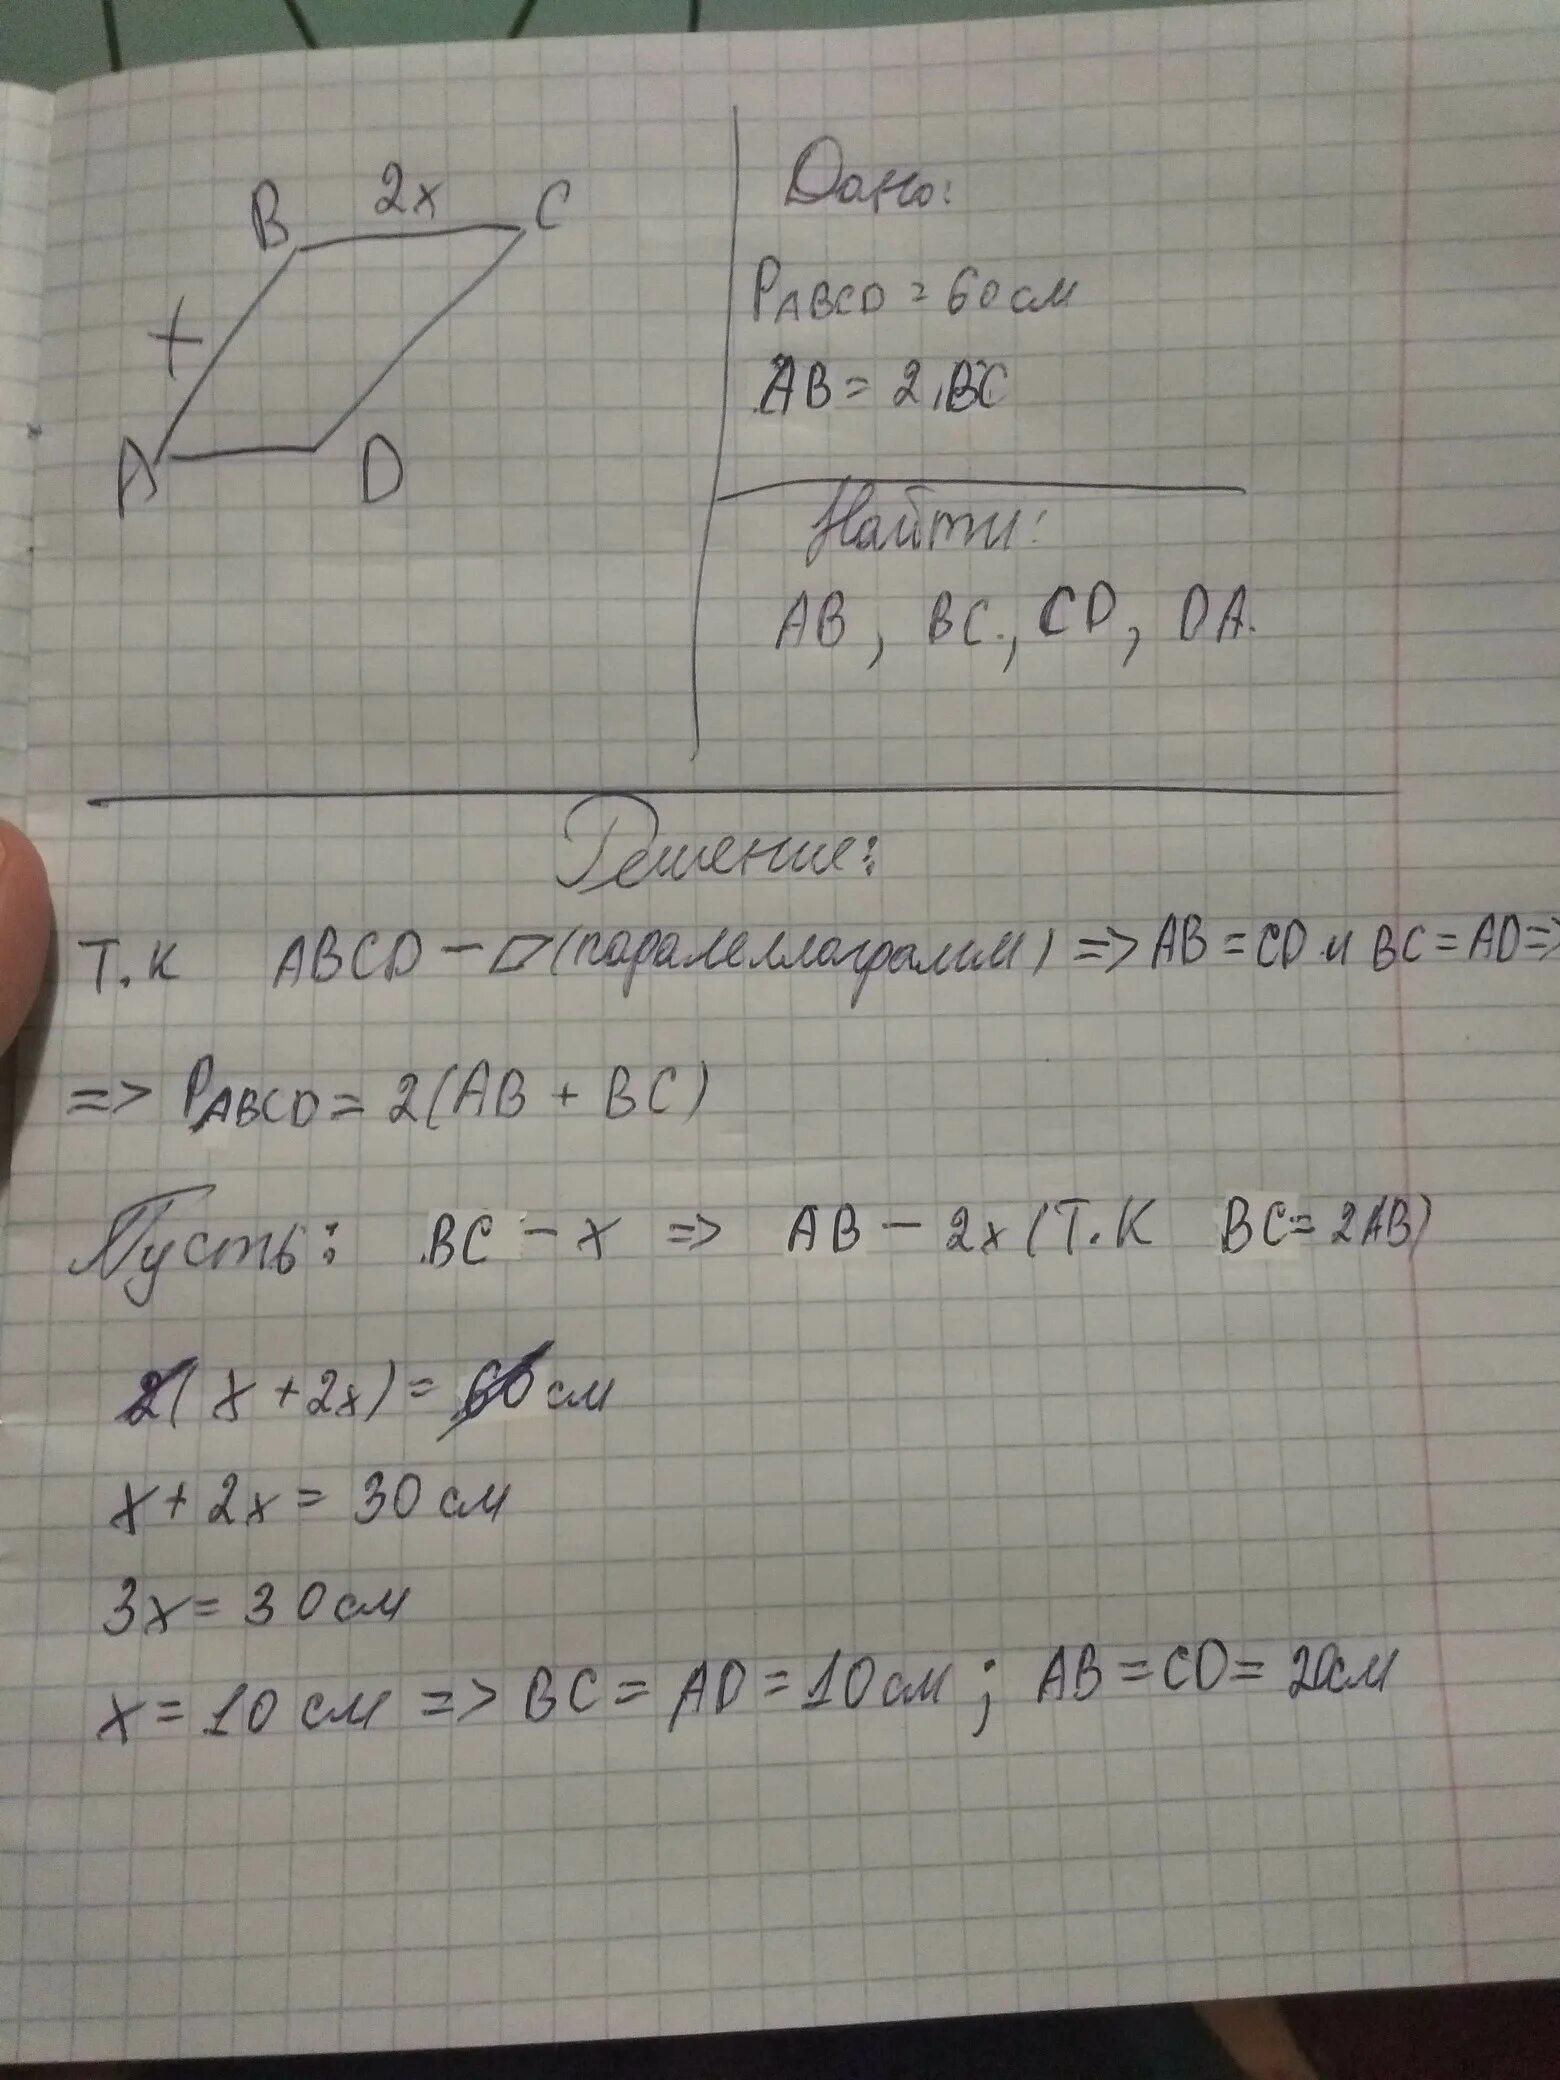 B 2x C
x
A D
Дано:
PABCD = 60 см
AB = 2 BC
Найти:
AB, BC, CD, DA.
Решение:
Т.к ABCD – ▱ (паралеллаграмм) => AB = CD и BC = AD =>
=> PABCD = 2(AB + BC)
Пусть: BC – x => AB – 2x (Т.К BC = 2AB)
2(x + 2x) = 60 см
x + 2x = 30 см
3x = 30 см
x = 10 см => BC = AD = 10 см; AB = CD = 20 см